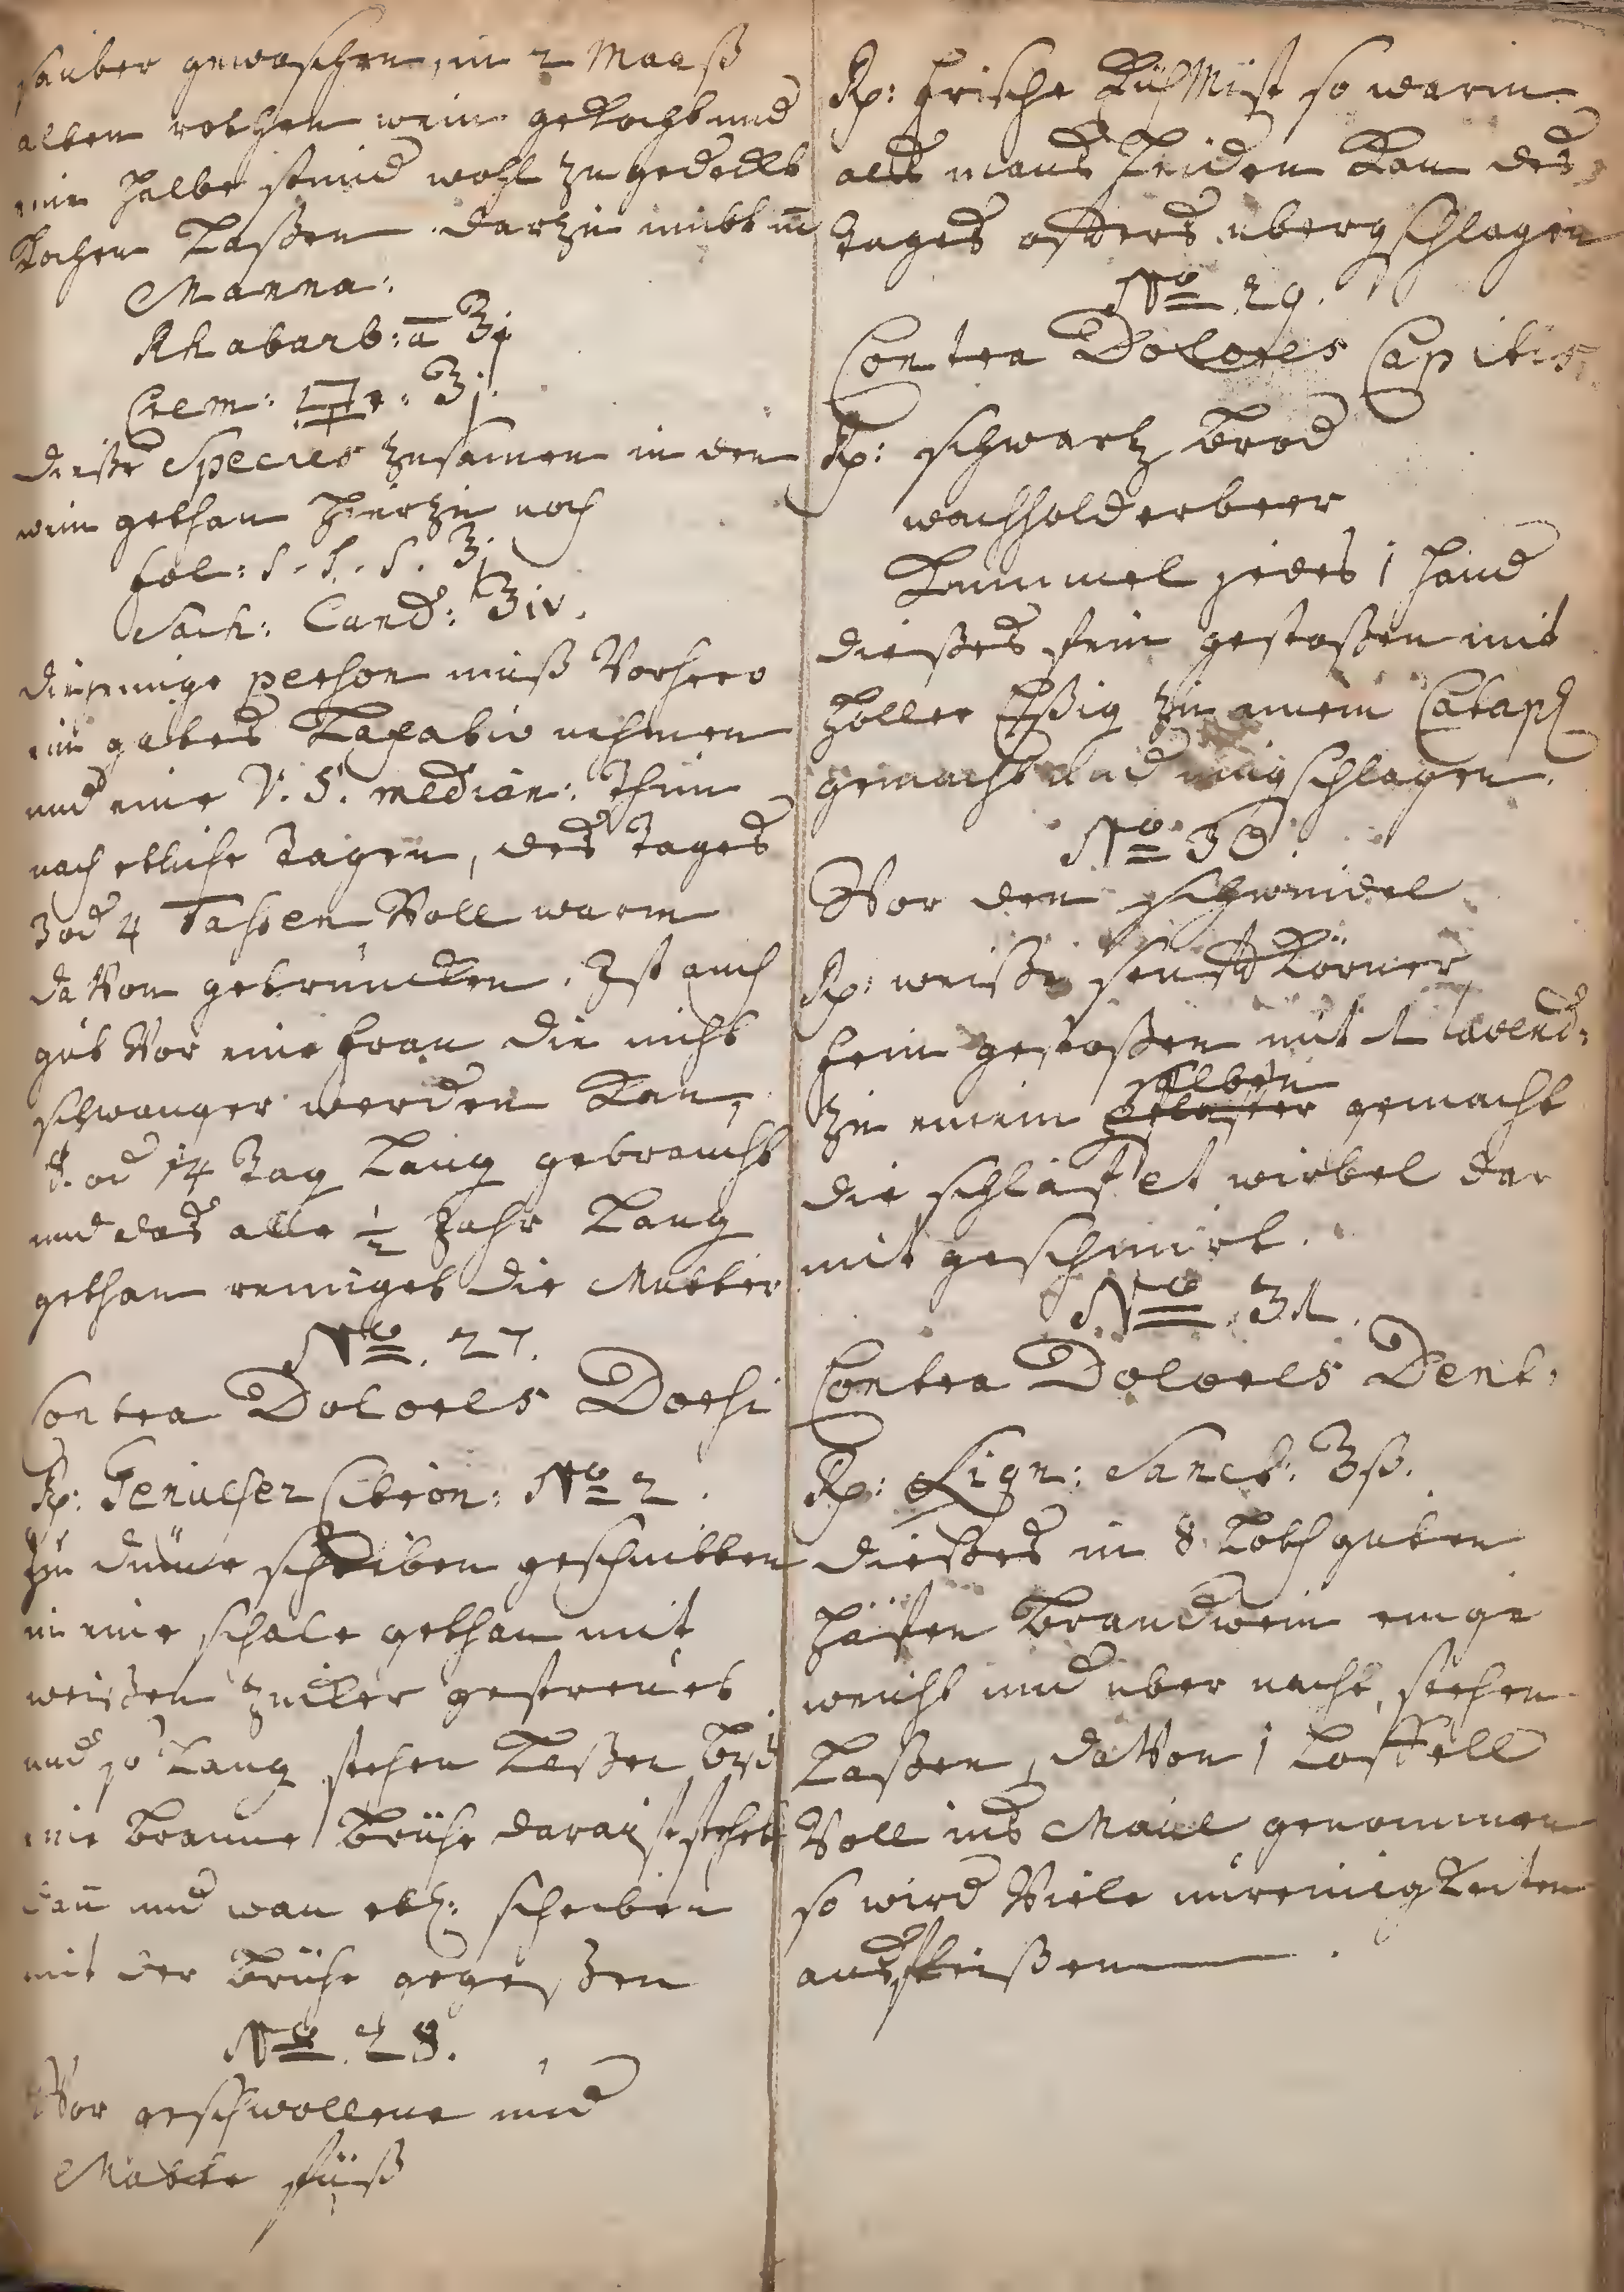 sauber gewaschen, in 2 Maaß
alten rothen wein gekocht und
eine halbe stund wohl zu gedeckt
kochen laßen darzu nimbt m̄
Manna:
Rhabarb: a̅ ʒj
Crem: 🜿ri: ʒj.
dieße Species zusamen in den
wein gethan hierzu noch
fol: S. S. S. ʒj
Sach: Cand: ʒiv.
diejenige person muß Vorhero
ein gutes Laxativ nehmen
und eine V. S. median: thun
nach etliche Tagen, des Tages
3 od 4 Tassen Voll warm
daVon getruncken. Ist auch
gut Vor eine frau die nicht
schwanger werden kan,
8. od 14 Tag lang gebraucht
und das alle ½ Jahr lang
gethan reiniget die Mutter
No. 27.
Contra Dolores Dorsi
Rp: Genueser Citron: No 2.
zu dünne scheiben geschnitten
in eine schale gethan mit
weißen zucker gestreuet
und so lang stehen laßen biß
eine braune brühe darauß stehet
dan̄ und wan etl: scheiben
mit der brühe gegeßen
No. 28.
Vor geschwollene und
Matte füß
Rp: frische KühMist so warm
als mans leiden kan des
tages öffters übergschlagen
No. 29.
Contra Dolores Capitis.
Rp: schwartz brod
wachholderbeer
Kummel jedes 1 hand
dießes fein gestoßen mit
holler Eßig zu einem Catapl
gemacht und umgschlagen.
No 30.
Vor den schwindel
Rp: weiße senffkörner
fein gestoßen mit Lavend:
salben
zu einem pflaster gemacht
die schläff et wirbel dar
mit geschmirt.
No. 31.
Contra Dolores Dent:
Rp: Lign: Sanct: ʒß.
dießes in 8 Loth guten
häffen brandwein einge
weicht und über nacht stehen
laßen, daVon 1 löffell
Voll ins Maul genommen
so wird Viele unreinigkeiten
ausfleißen.